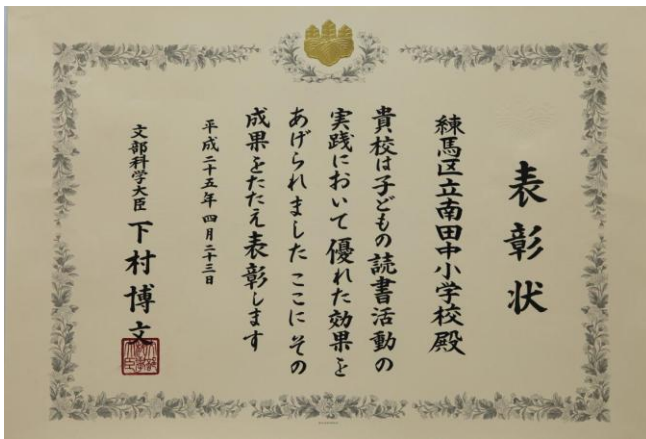 表彰状
練馬区立南田中小学校殿
貴校は子どもの読書活動の
実践において優れた効果を
あげられました ここにその
成果をたたえ表彰します
平成二十五年四月二十三日
文部科学大臣 下村博文